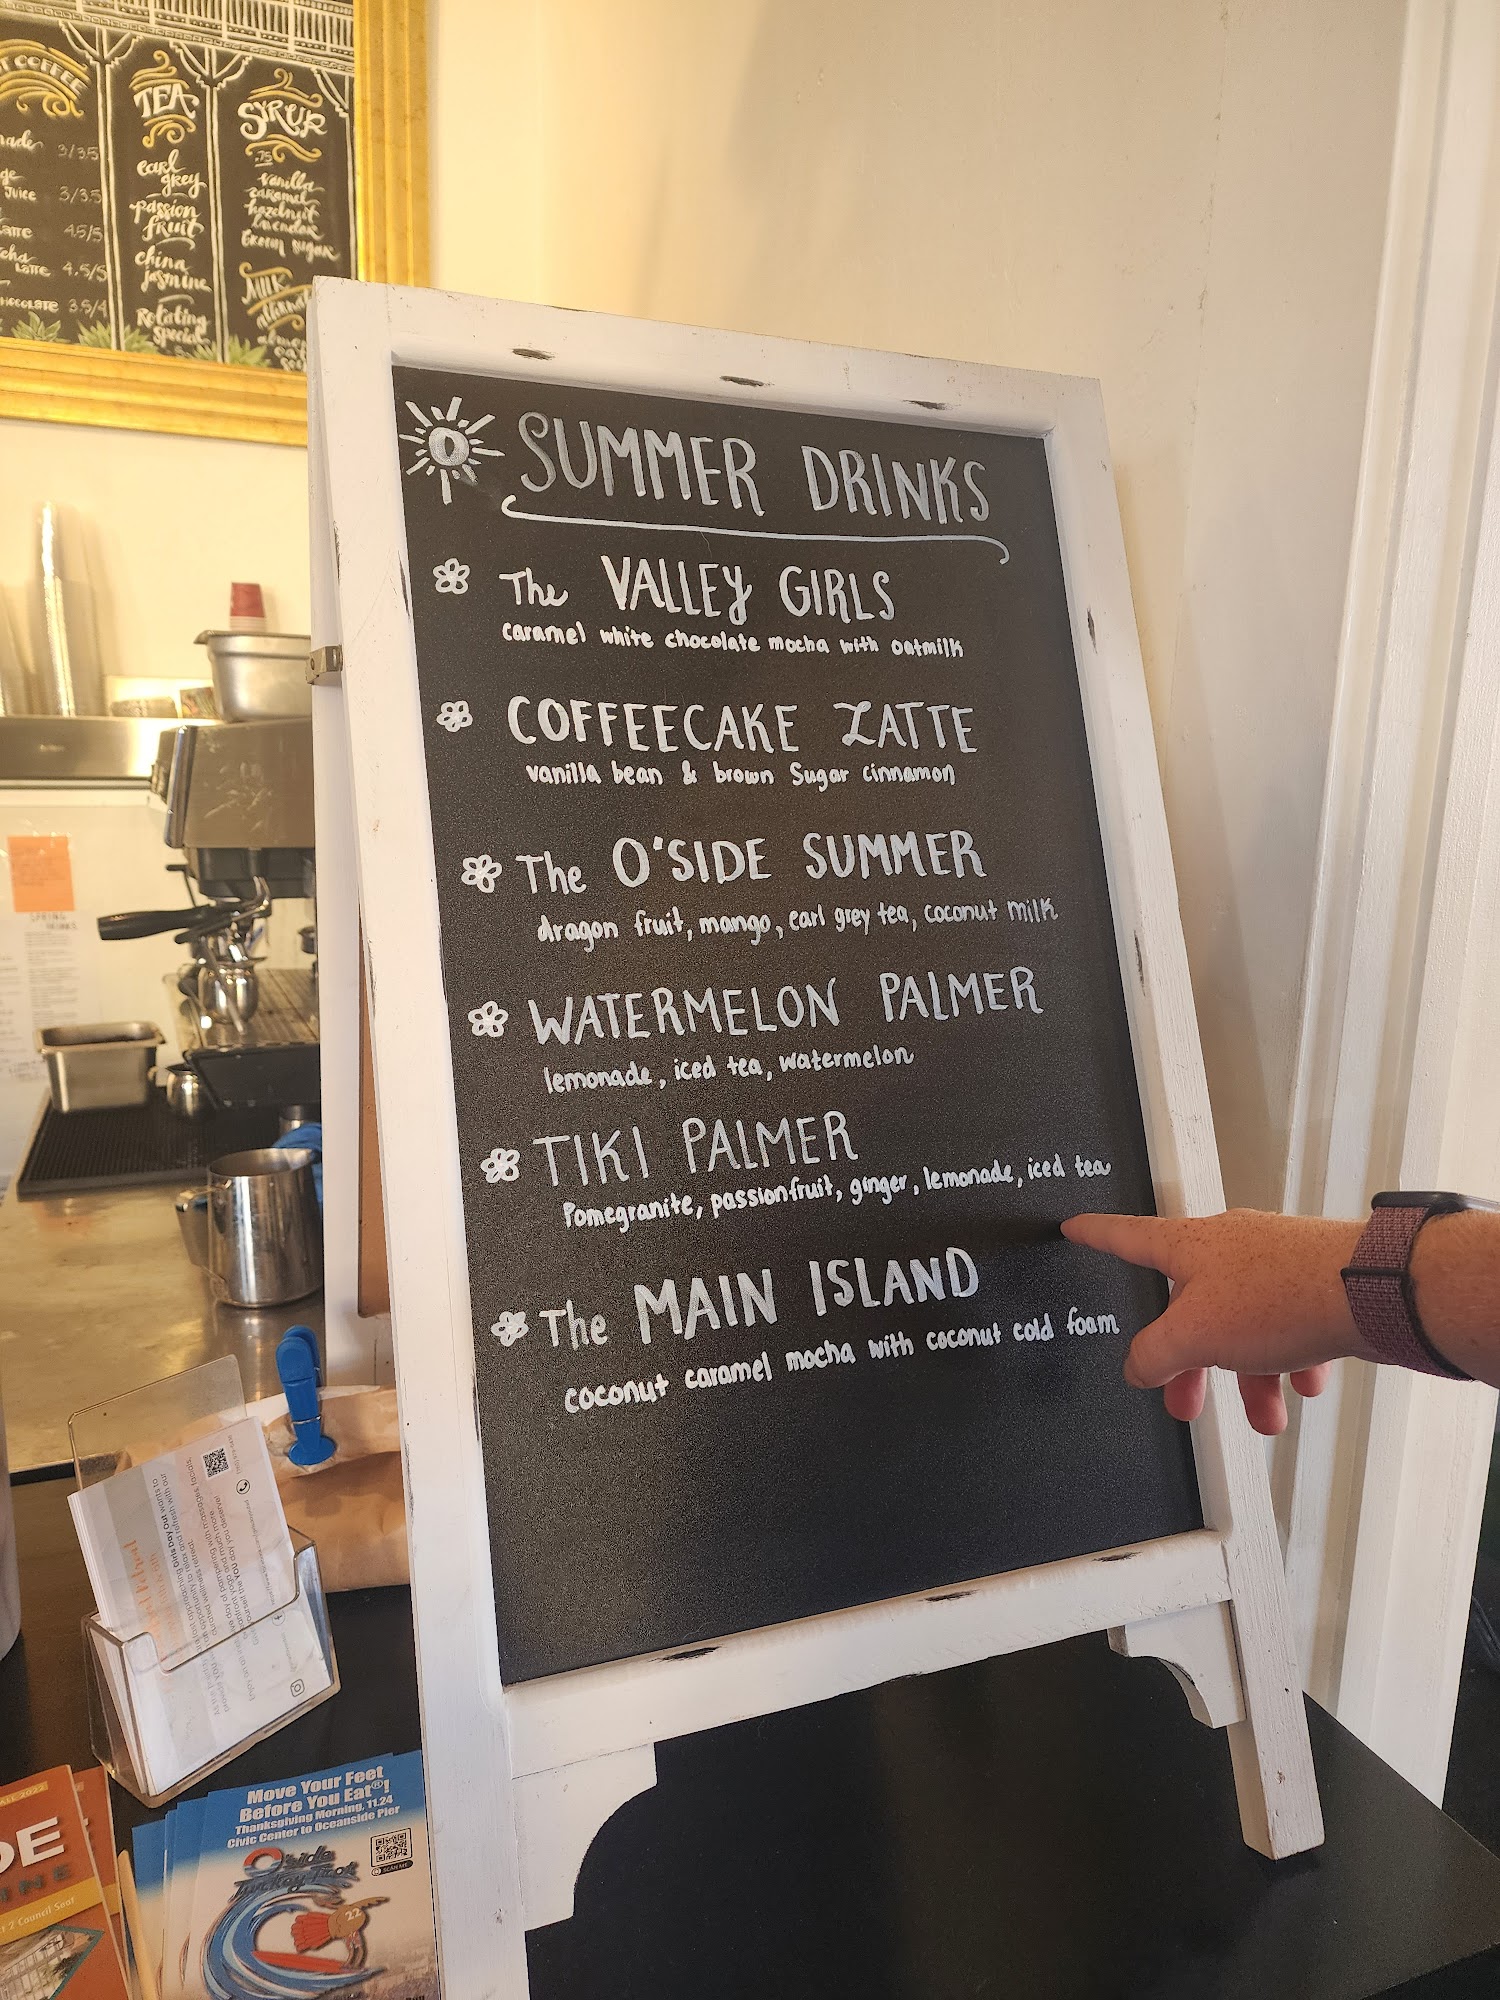 COFFEE
3/3.5
Juice 3/3.5
4.5/5
Latte 4.5/5
3.5/4
TEA
earl
grey
passion
fruit
china
jasmine
Rotating
Special
SYRUP
.75
vanilla
caramel
hazelnut
lavender
brown sugar
MILK
SUMMER DRINKS
The VALLEY GIRLS
caramel white chocolate mocha with oatmilk
COFFEECAKE LATTE
vanilla bean & brown Sugar cinnamon
The O'SIDE SUMMER
dragon fruit, mango, earl grey tea, coconut milk
WATERMELON PALMER
lemonade, iced tea, watermelon
TIKI PALMER
Pomegranite, passionfruit, ginger, lemonade, iced tea
The MAIN ISLAND
coconut caramel mocha with coconut cold foam
SPRING
DRINKS
Move Your Feet
Before You Eat®!
Thanksgiving Morning, 11.24
Civic Center to Oceanside Pier
SCAN ME
O'side
Turkey Trot
22
ALL 2022
DE
INE
2 Council Seat